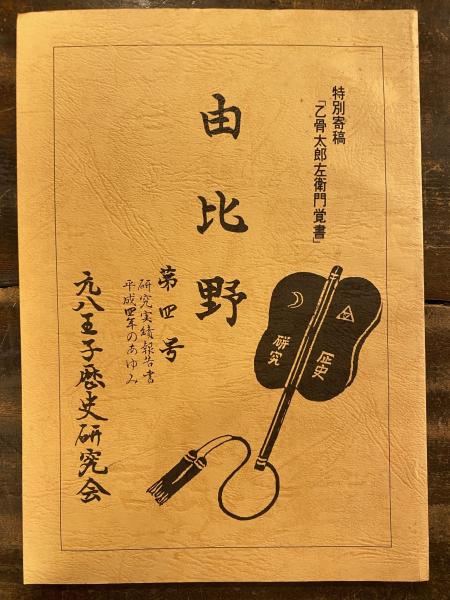 特別寄稿
「乙骨太郎左衛門覚書」
由比野
第四号
研究実績報告書
平成四年のあゆみ
元八王子歴史研究会
歴史
研究